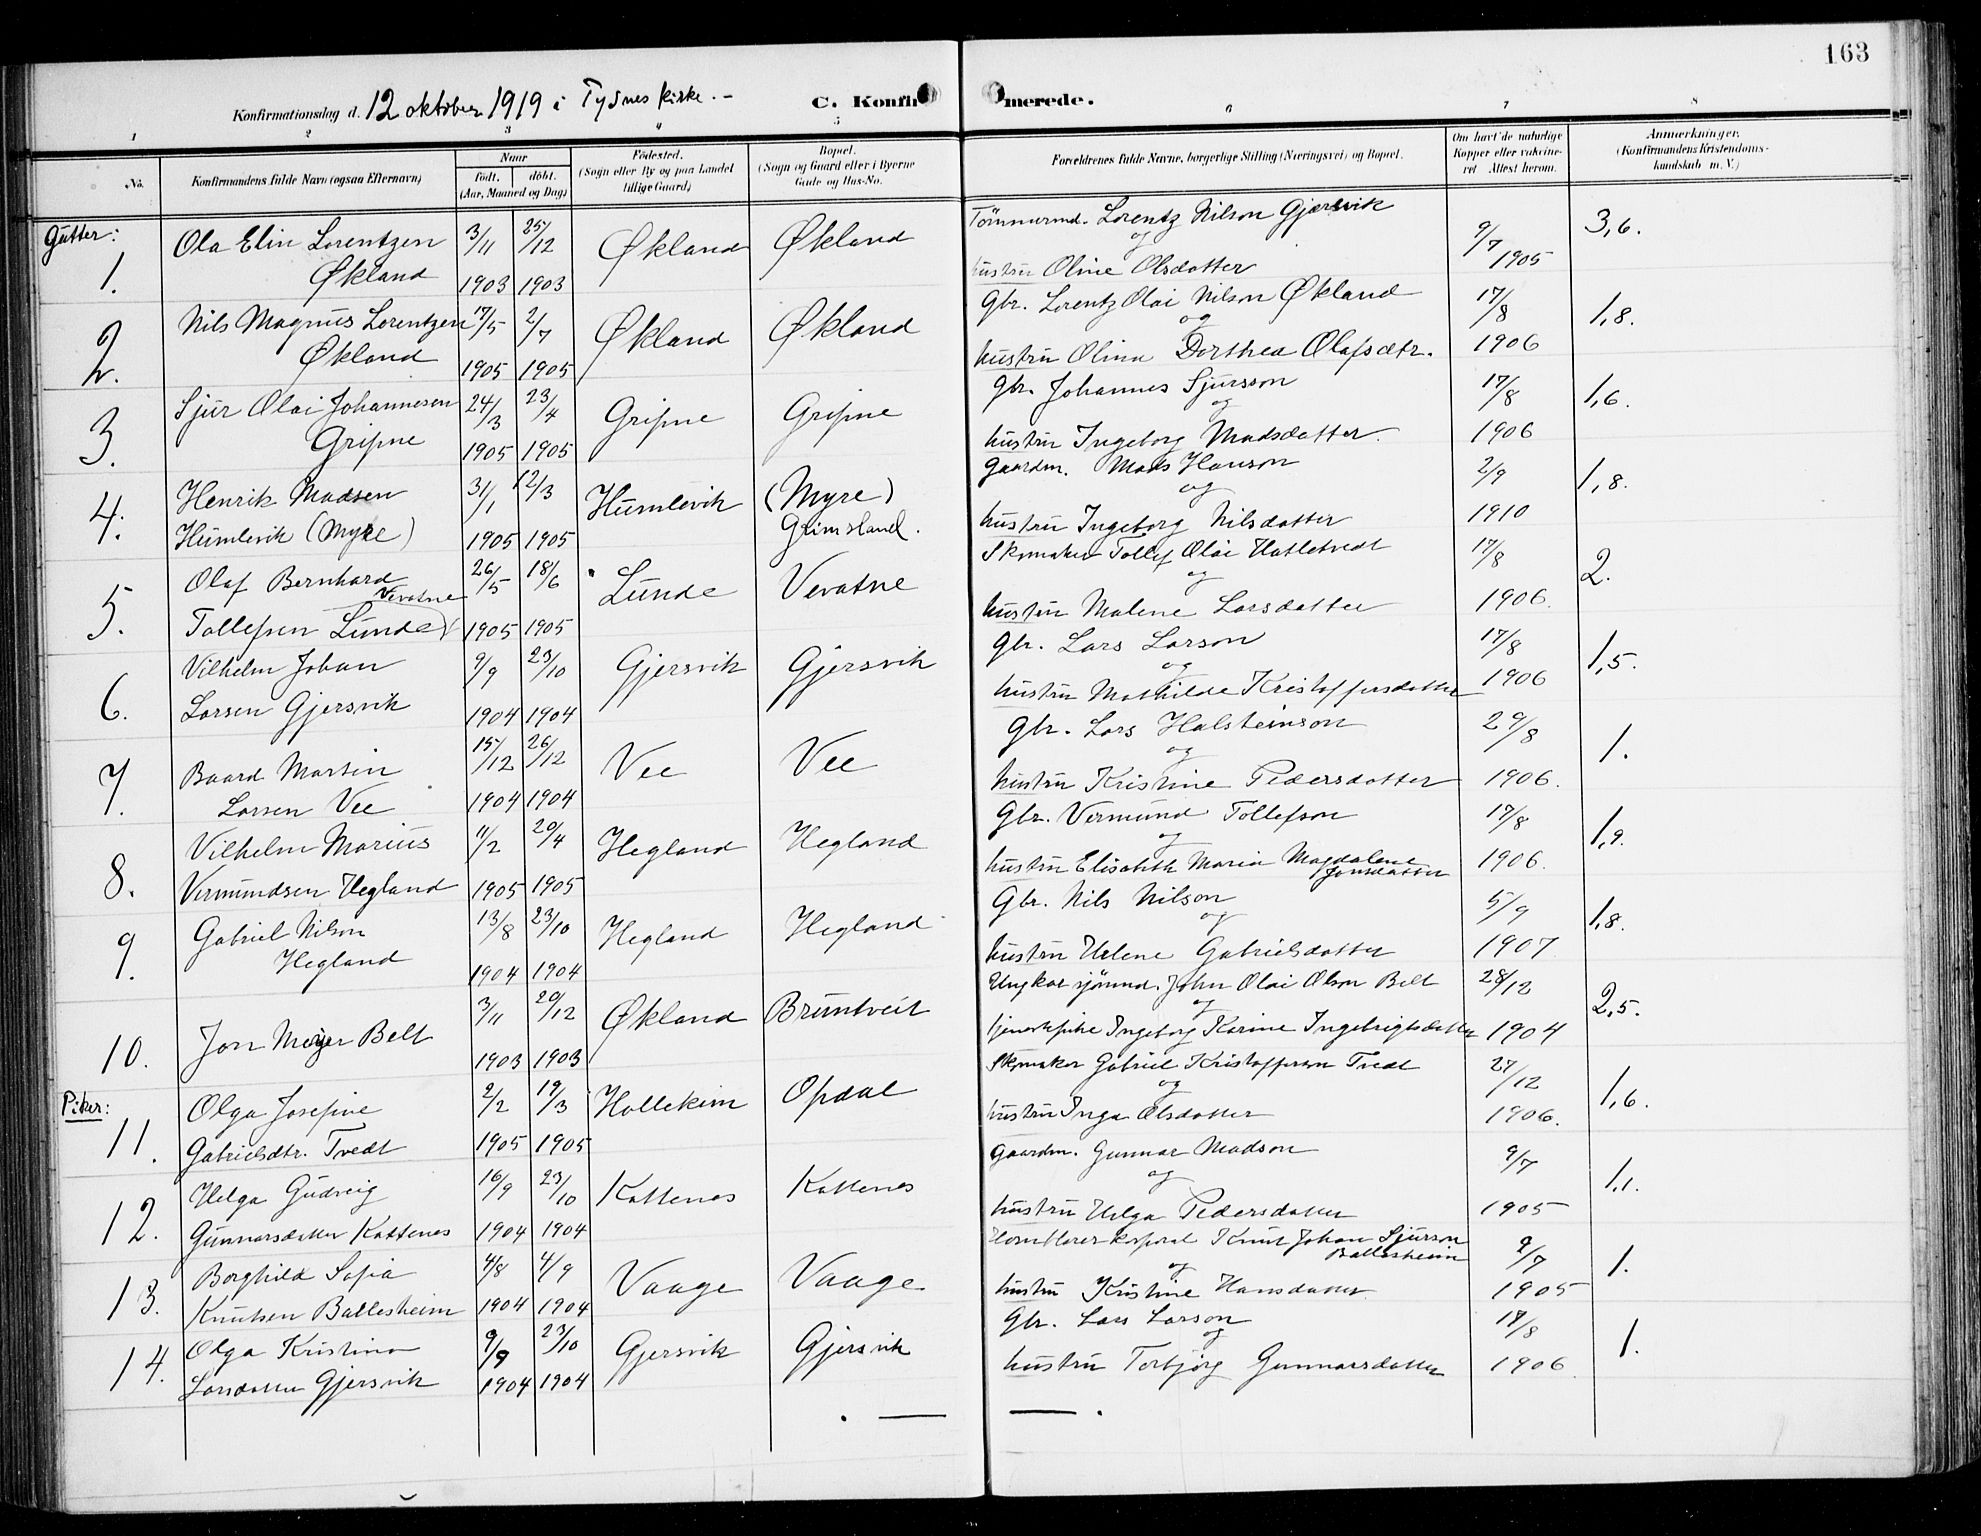 163
Konfirmationsdag d. 12 oktober 1919 i Tysnes kirke. –
C. Konfirmerede.
1 2 3 4 5 6 7 8
No.
Konfirmandens fulde Navn (ogsaa Efternavn)
Naar
født. døbt.
(Aar, Maaned og Dag)
Fødested.
(Sogn eller By og paa Landet
tillige Gaard)
Bopæl.
(Sogn og Gaard eller i Byerne
Gade og Hus-No.
Forældrenes fulde Navne, borgerlige Stilling (Næringsvei) og Bopæl.
Om havt de naturlige
Kopper eller vakcine-
ret Attest herom.
Anmærkninger.
(Konfirmandens Kristendoms-
kundskab m. V.)
Gutter:
1. Ola Elin Lorentzen 3/11 25/12 Økland Økland Tömmermd. Lorentz Nilson Gjersvik 9/7 3,6.
og
Økland 1903 1903 hustru Oline Olsdatter 1905
2. Nils Magnus Lorentzen 17/5 2/7 Økland Økland Gbr. Lorentz Olai Nilson Økland 17/8 1,8.
og
Økland 1905 1905 hustru Olina Dorthea Olafsdtr. 1906
3. Sjur Olai Johannesen 24/3 23/4 Gripne Gripne Gbr. Johannes Sjursson 17/8 1,6.
og
Gripne 1905 1905 hustru Ingeborg Madsdatter. 1906
4. Henrik Madsen 31/1 12/3 Humlevik (Myre) Gaardm. Mads Hanson 2/9 1,8.
og
Humlevik (Myre) 1905 1905 Grimsland. hustru Ingeborg Nilsdatter 1910
5. Olaf Bernhard 26/5 18/6 Lunde Vevatne Skomaker Tollef Olai Hatletvedt 17/8 2.
Vevatne og
Tollefsen Lunde 1905 1905 hustru Malene Larsdatter 1906.
6. Vilhelm Johan 9/9 23/10 Gjersvik Gjersvik Gbr. Lars Larson 17/8 1,5.
og
Larsen Gjersvik 1904 1904 hustru Mathilde Kristoffersdatter 1906
7. Baard Martin 15/12 26/12 Vee Vee Gbr. Lars Halsteinson 29/8 1.
og
Larsen Vee 1904 1904 hustru Kristine Pedersdatter 1906.
8. Vilhelm Marius 11/2 20/4 Hegland Hegland Gbr. Vermund Tollefson 17/8 1,9.
og
Vermundsen Hegland 1905 1905 hustru Elisabeth Maria Magdalene 1906.
Jonsdatter
9. Gabriel Nilson 13/8 23/10 Hegland Hegland Gbr. Nils Nilson 5/9 1,8.
og
Hegland 1904 1904 hustru Helene Gabrielsdatter 1907
10. Jon Meyer Belt 3/11 20/12 Økland Bruntveit Ungkar sjömd. John Olai Olson Belt 28/12 2,5.
og
1903 1903 tjenestepike Ingeborg Karine Ingebrigtsdatter 1904
Piker:
11. Olga Josefine 2/2 19/3 Hollekim Opdal Skomaker Gabriel Kristofferson Tvedt 27/12 1,6.
og
Gabrielsdtr. Tvedt 1905 1905 hustru Inga Olsdatter 1906.
12. Helga Gudveig 16/9 23/10 Kattenes Kattenes Gaardm. Gunnar Madson 9/7 1,1.
og
Gunnarsdatter Kattenes 1904 1904 hustru Helga Pedersdatter 1905
13. Borghild Sofia 4/8 4/9 Vaage Vaage Hornblæser korporal Knut Johan Sjurson 9/7 1.
Ballesheim
og
Knutsen Ballesheim 1904 1904 hustru Kristine Hansdatter 1905
14. Olga Kristina 9/9 23/10 Gjersvik Gjersvik Gbr. Lars Larson 17/8 1.
og
Larsdatter Gjersvik 1904 1904 hustru Torbjörg Gunnarsdatter 1906.